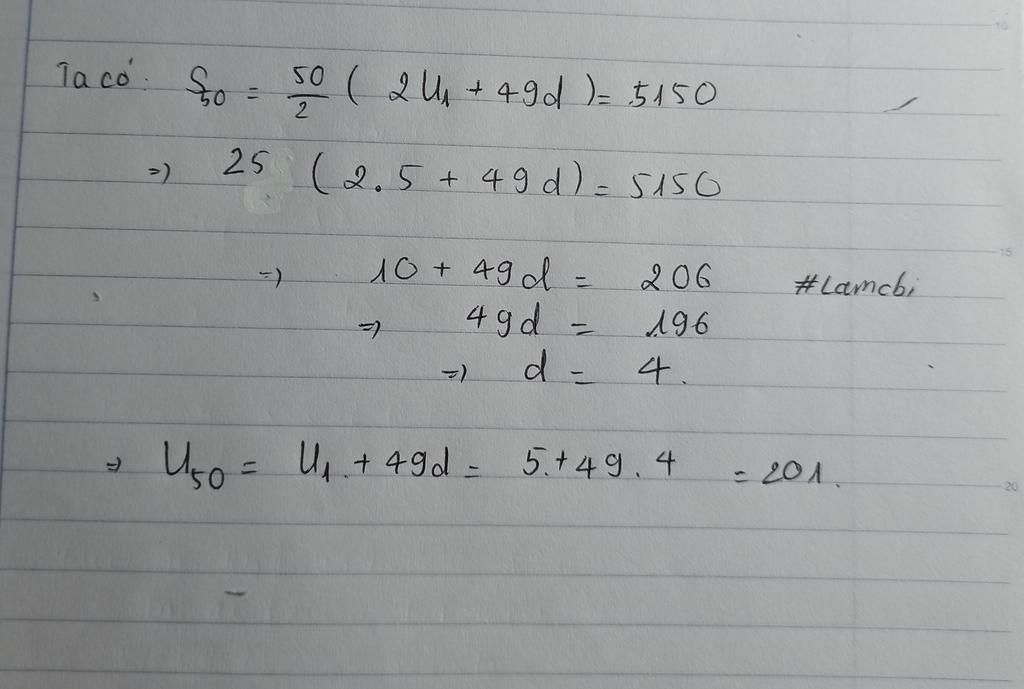 Ta có: S50 = 50/2 ( 2U1 + 49d ) = 5150
=) 25 ( 2.5 + 49d ) = 5150
=) 10 + 49d = 206 #Lamcbi
=) 49d = 196
=) d = 4.
=) U50 = U1 + 49d = 5 + 49.4 = 201.